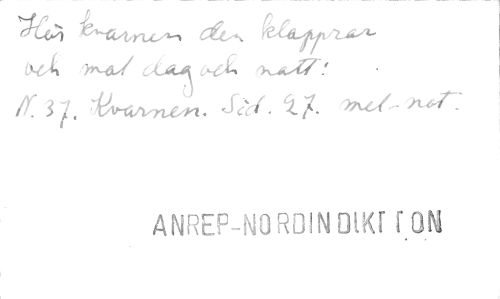 Hör kvarnen den klapprar
och mal dag och natt:
N. 37. Kvarnen. Sid. 27. mel-not.
ANREP-NORDIN DIKT TON